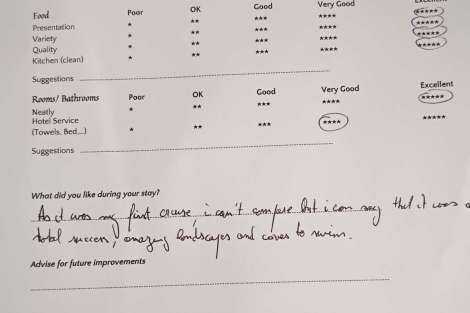 Food Poor OK Good Very Good
Presentation * ** *** **** *****
Variety * ** *** **** *****
Quality * ** *** **** *****
Kitchen (clean) * ** *** **** *****
Suggestions
Rooms/ Bathrooms Poor OK Good Very Good Excellent
Neatly * ** *** **** *****
Hotel Service
(Towels, Bed,...) * ** *** **** *****
Suggestions
What did you like during your stay?
As it was my first course, i can't compare but i can say that it was a
total succes, amazing landscapes and coves to swim.
Advise for future improvements